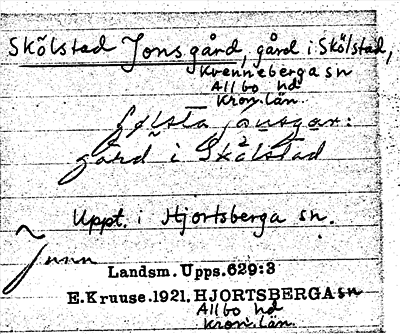 Skölstad Jonsgård, gård i Skölstad,
Kvenneberga sn
Allbo hd
Kron. län.
gård i Skölstad
Uppt. i Hjortsberga sn.
Landsm. Upps. 629:3
E. Kruuse. 1921. HJORTSBERGA sn
Allbo hd
Kron. län.